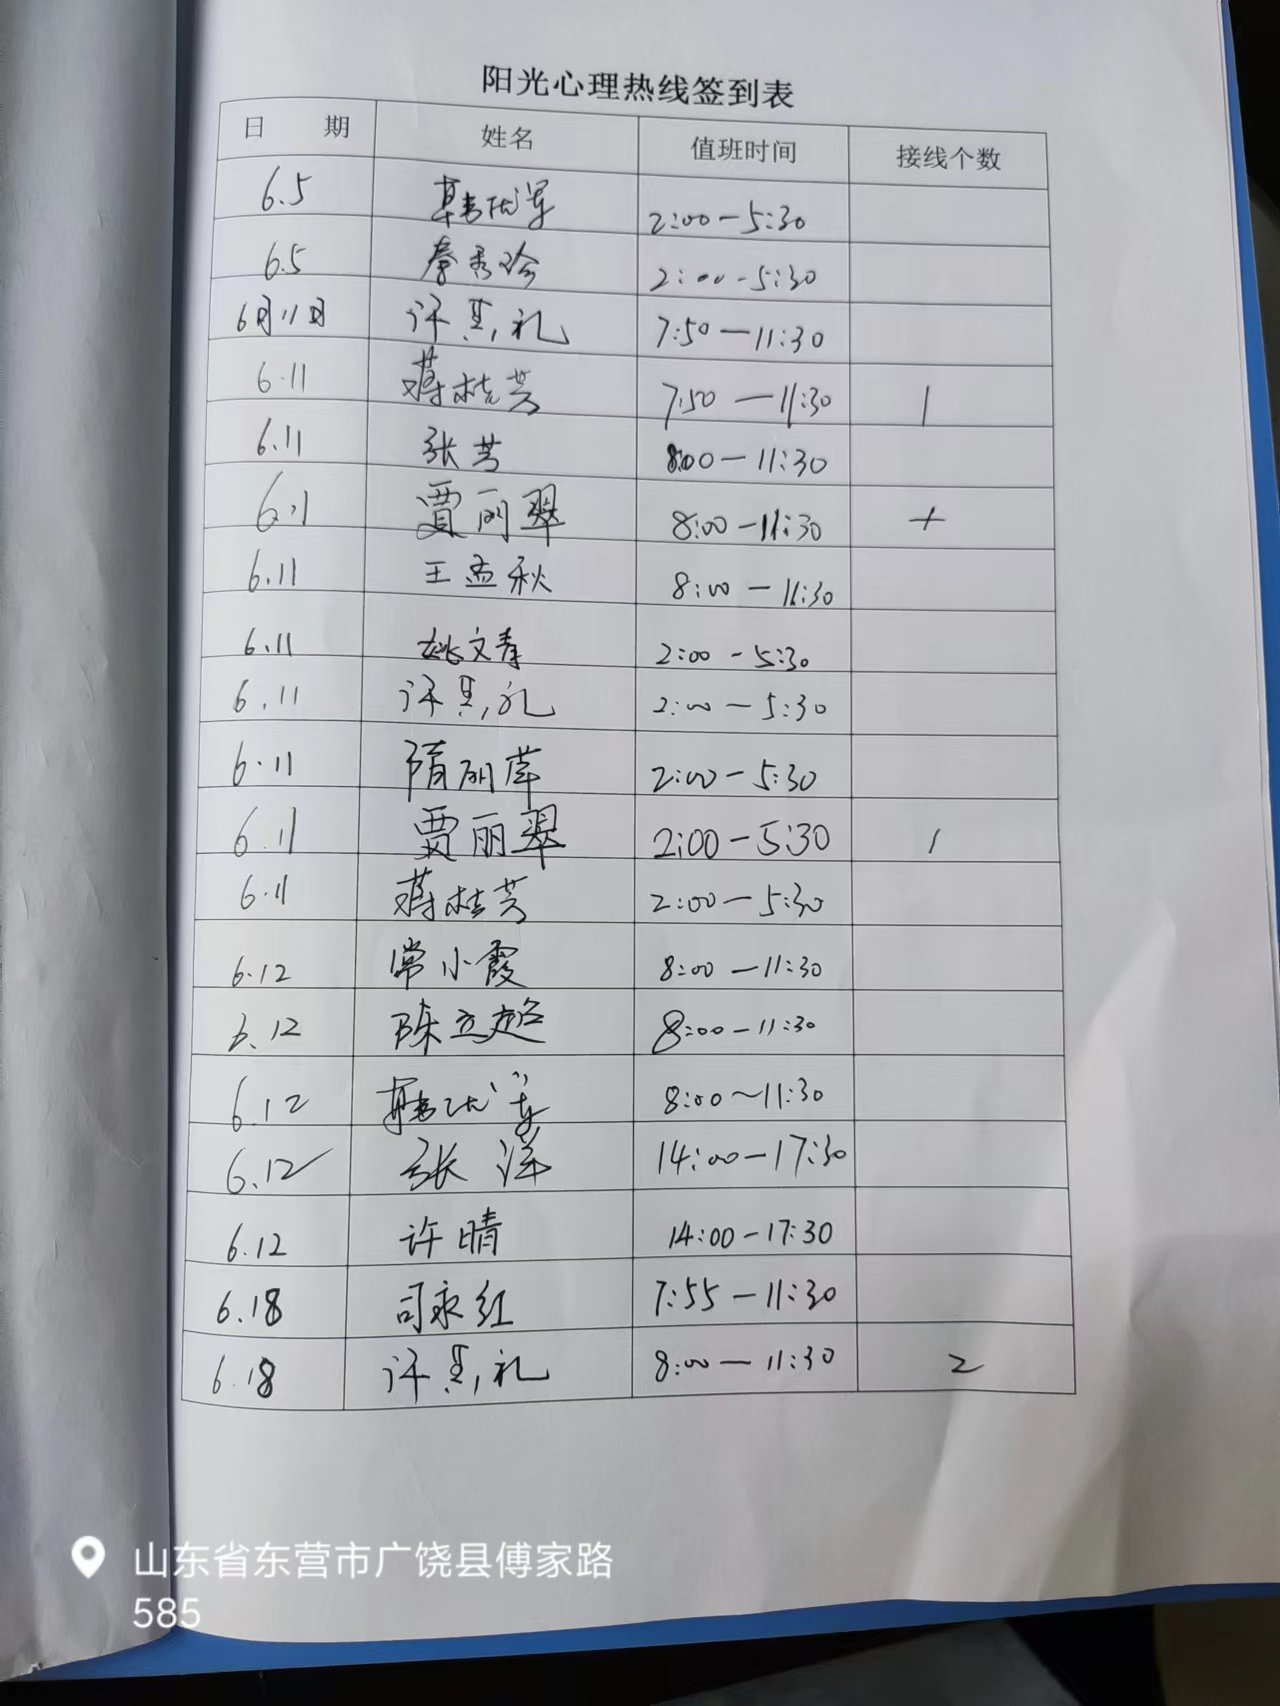 阳光心理热线签到表
日 期 姓名 值班时间 接线个数
6.5 韩优军 2:00-5:30
6.5 秦秀玲 2:00-5:30
6月11日 许其礼 7:50-11:30
6.11 蒋桂芳 7:50-11:30 1
6.11 张芳 8:00-11:30
6.11 贾丽翠 8:00-11:30
6.11 王孟秋 8:00-11:30
6.11 姚文青 2:00-5:30
6.11 许其礼 2:00-5:30
6.11 隋丽萍 2:00-5:30
6.11 贾丽翠 2:00-5:30 1
6.11 蒋桂芳 2:00-5:30
6.12 常小霞 8:00-11:30
6.12 陈立超 8:00-11:30
6.12 韩优军 8:00~11:30
6.12 张洋 14:00-17:30
6.12 许晴 14:00-17:30
6.18 司永红 7:55-11:30
6.18 许其礼 8:00-11:30 2
山东省东营市广饶县傅家路
585